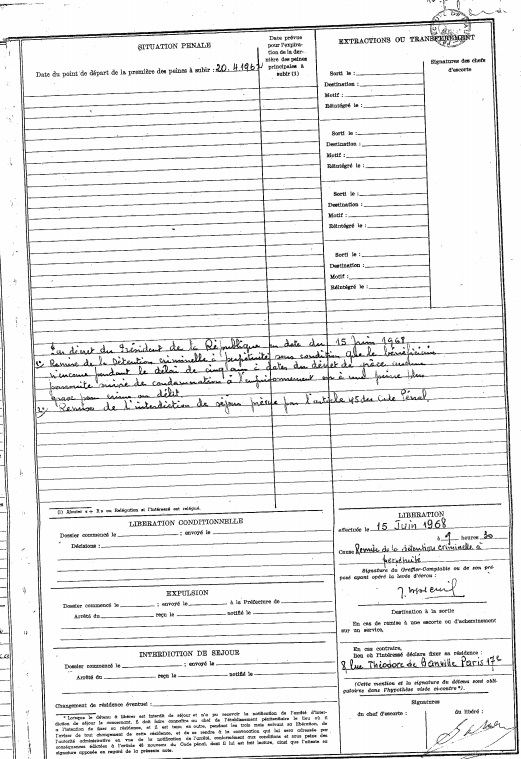 SITUATION PENALE
Date du point de départ de la première des peines à subir : 20.4.1967
Date prévue
pour l'expira-
tion de la der-
nière des peines
principales à
subir (1)
EXTRACTIONS OU TRANSFEREMENT
Signatures des chefs
d'escorte
Sorti le :
Destination :
Motif :
Réintégré le :
Sorti le :
Destination :
Motif :
Réintégré le :
Sorti le :
Destination :
Motif :
Réintégré le :
Sorti le :
Destination :
Motif :
Réintégré le :
décret du Président de la République en date du 15 Juin 1968
1° Remise de la détention criminelle à perpétuité sous condition que le bénéficiaire
n'encoure pendant le délai de cinq ans à dater du décret de grâce aucune
poursuite suivie de condamnation à l'emprisonnement ou à une peine plus
grave pour crime ou délit.
2° Remise de l'interdiction de séjour prévue par l'article 45 du Code Pénal
(1) Ajouter « + R » ou Relégation et l'intéressé est relégué.
LIBERATION CONDITIONNELLE
Dossier commencé le ; envoyé le
Décisions :
EXPULSION
Dossier commencé le ; envoyé le à la Préfecture de
Arrêté du reçu le notifié le
INTERDICTION DE SEJOUR
Dossier commencé le ; envoyé le
Arrêté du reçu le notifié le
Changement de résidence éventuel :
* Lorsque le détenu à libérer est interdit de séjour et n'a pu recevoir la notification de l'arrêté d'inter-
diction de séjour le concernant, il doit faire connaître au chef de l'établissement pénitentiaire le lieu où il
a l'intention de fixer sa résidence, et il est tenu, pendant les trois mois suivant sa libération, de
l'aviser de tout changement de cette résidence, et de se rendre à la convocation qui lui sera adressée par
l'autorité administrative en vue de la notification de l'arrêté, conformément aux conditions et sous peine des
conséquences édictées à l'article 49 nouveau du Code pénal, dont il lui est fait lecture, ainsi que l'atteste sa
signature apposée en regard de la présente note.
LIBERATION
effectuée le 15 Juin 1968
à 9 heures 30
Cause Remise de la détention criminelle à
perpétuité
Signature du Greffier-Comptable ou de son pré-
posé ayant opéré la levée d'écrou :
Destination à la sortie
En cas de remise à une escorte ou d'acheminement
sur un service,
En cas contraire,
lieu où l'intéressé déclare fixer sa résidence :
8 rue Théodore de Banville Paris 17e
(Cette mention et la signature du détenu sont obli-
gatoires dans l'hypothèse visée ci-contre*).
Signatures
du chef d'escorte : du libéré :